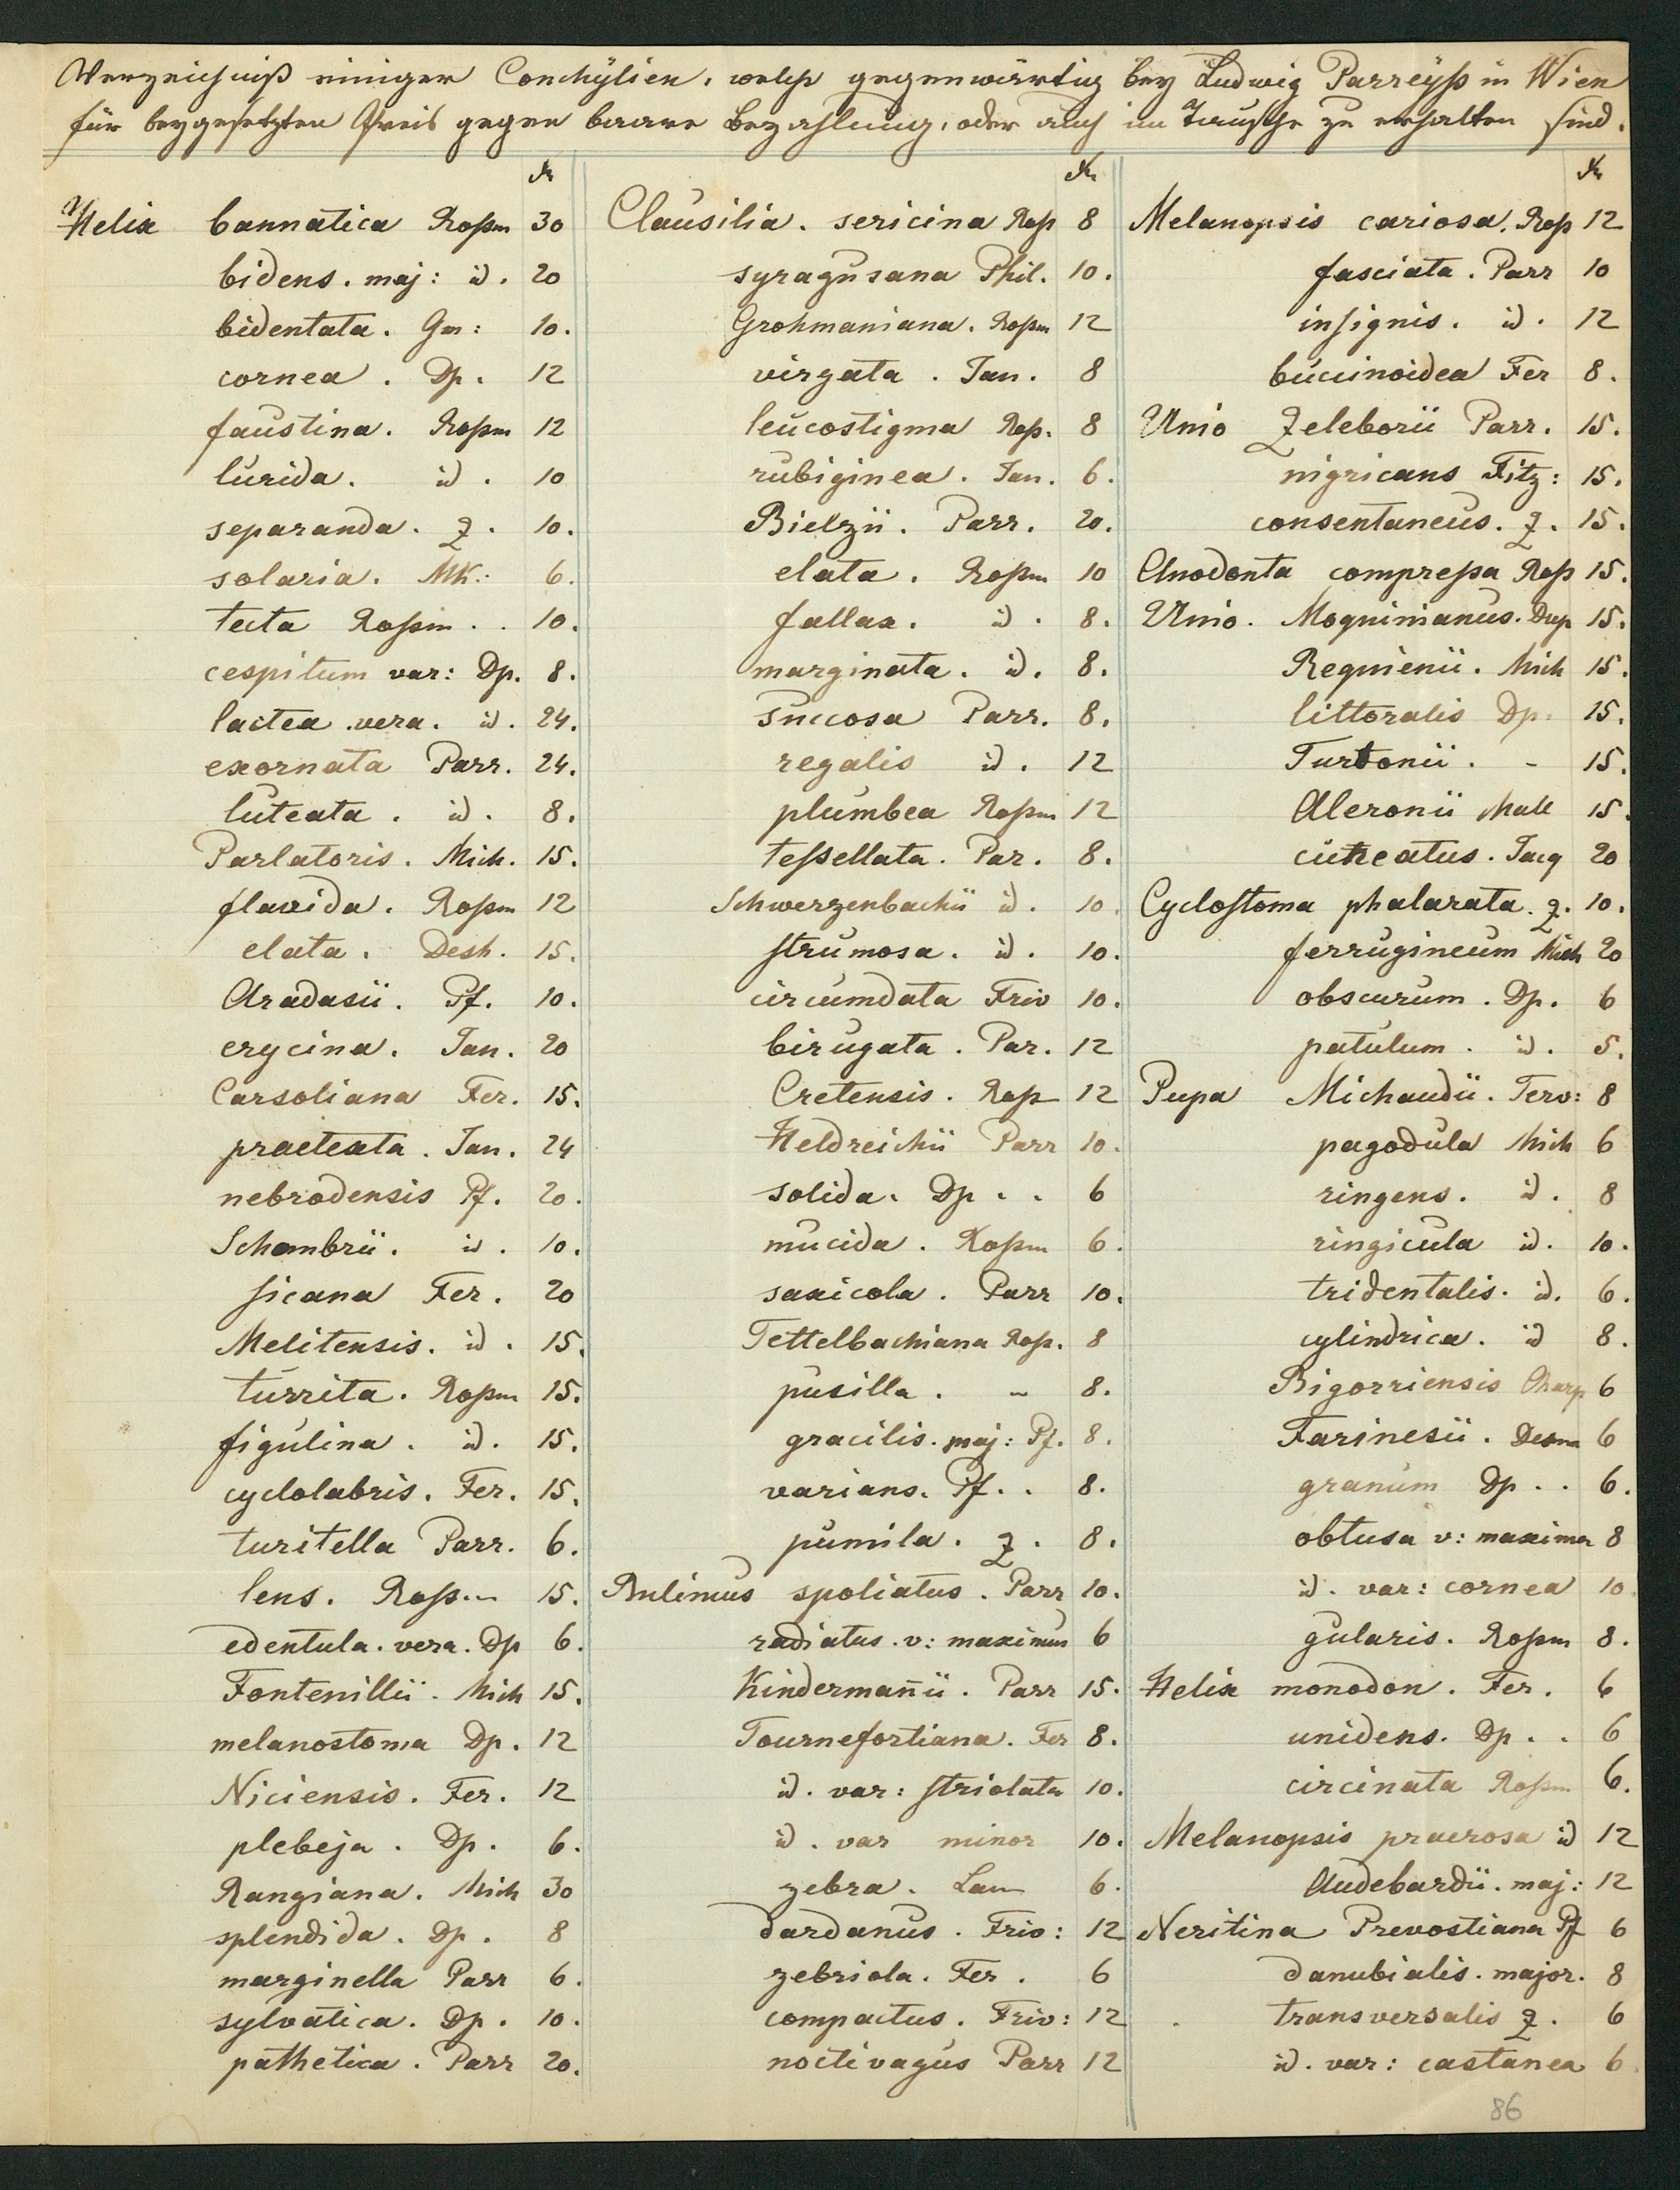 Verzeichniß einiger Conchÿlien, welche gegenwärtig bey Ludwig Parreÿß in Wien
für beygesetzten Preis gegen baare Bezahlung, oder auch im Tausche zu erhalten sind.
Kr
Helix bannatica Roßm 30
bidens. maj: id. 20
bidentata. Gm: 10.
cornea. Dp. 12
faustina. Roßm 12
lurida. id. 10
separanda. Z. 10.
solaria. MK.: 6.
tecta Roßm.. 10.
cespitum var: Dp. 8.
lactea .vera. id. 24.
exornata Parr. 24.
luteata. id. 8.
Parlatoris. Mich. 15.
flavida. Roßm 12
elata. Desh. 15.
Aradasii. Pf. 10.
erycina. Jan. 20
Carsoliana Fer. 15.
praetexta. Jan. 24
nebrodensis Pf. 20.
Schombrii. id. 10.
sicana Fer. 20
Melitensis. id. 15.
turrita. Roßm 15.
figulina. id. 15.
cyclolabris. Fer. 15.
turitella Parr. 6.
lens. Roßm 15.
edentula. vera. Dp 6.
Fontenillii. Mich 15.
melanostoma Dp. 12
Niciensis. Fer. 12
plebeja. Dp. 6.
Rangiana. Mich 30
splendida. Dp. 8
marginella Parr 6.
sylvatica. Dp. 10.
pathetica. Parr 20.
Kr
Clausilia. sericina Roß 8
syragusana Phil. 10.
Grohmaniana. Roßm 12
virgata. Jan. 8
leucostigma Roß. 8
rubiginea. Jan. 6.
Bielzii. Parr. 20.
elata. Roßm 10
fallax. id. 8.
marginata. id. 8.
succosa Parr. 8.
regalis id. 12
plumbea Roßm 12
teßellata. Par. 8.
Schwerzenbachii id. 10.
strumosa. id. 10.
circumdata Friv 10.
birugata. Par. 12
Cretensis. Roß 12
Heldreichii Parr 10.
solida. Dp.. 6
mucida. Roßm 6.
saxicola. Parr 10.
Tettelbachiana Roß. 8
pusilla. - 8.
gracilis. maj: Pf. 8.
varians. Pf.. 8.
pumila. Z. 8.
Bulimus spoliatus. Parr 10.
radiatus. v: maximus 6
Kindermañii. Parr 15.
Tournefortiana. Fer 8.
id. var: striolata 10.
id. var minor 10.
zebra. Lam 6.
dardanus. Friv: 12
zebriola. Fer. 6
compactus. Friv: 12
noctivagus Parr 12
Kr
Melanopsis cariosa. Roß 12
fasciata. Parr 10
insignis. id. 12
buccinoidea Fer 8.
Unio Zeleborii Parr. 15.
nigricans Fitz: 15.
consentaneus. Z. 15.
Anodonta compreßa Roß 15.
Unio. Moquinianus. Dup 15.
Requienii. Mich 15.
littoralis Dp. 15.
Turtonii. - 15.
Aleronii Mass 15.
cuneatus. Jacq 20
Cyclostoma phalarata. Z. 10.
ferrugineum Mich 20
obscurum. Dp. 6
patulum. id. 5.
Pupa Michaudii. Terv: 8
pagodula Mich 6
ringens. id. 8
ringicula id. 10.
tridentalis. id. 6.
cylindrica. id 8.
Bigorriensis Charp 6
Farinesii. Desm 6
granum Dp.. 6.
obtusa v: maxima 8
id. var: cornea 10
gularis. Roßm 8.
Helix monodon. Fer. 6
unidens. Dp.. 6
circinata Roßm 6.
Melanopsis praerosa id 12
Audebardii. maj: 12
Neritina Prevostiana Pf 6
danubialis. major. 8
transversalis Z. 6
id. var: castanea 6
86